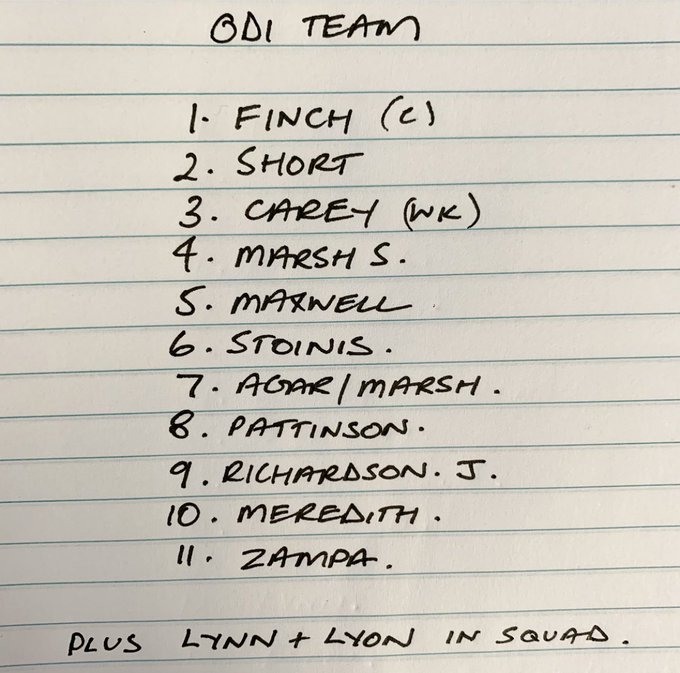 ODI TEAM
1. FINCH (C)
2. SHORT
3. CAREY (WK)
4. MARSH S.
5. MAXWELL
6. STOINIS.
7. AGAR/MARSH.
8. PATTINSON.
9. RICHARDSON. J.
10. MEREDITH.
11. ZAMPA.
PLUS LYNN + LYON IN SQUAD.